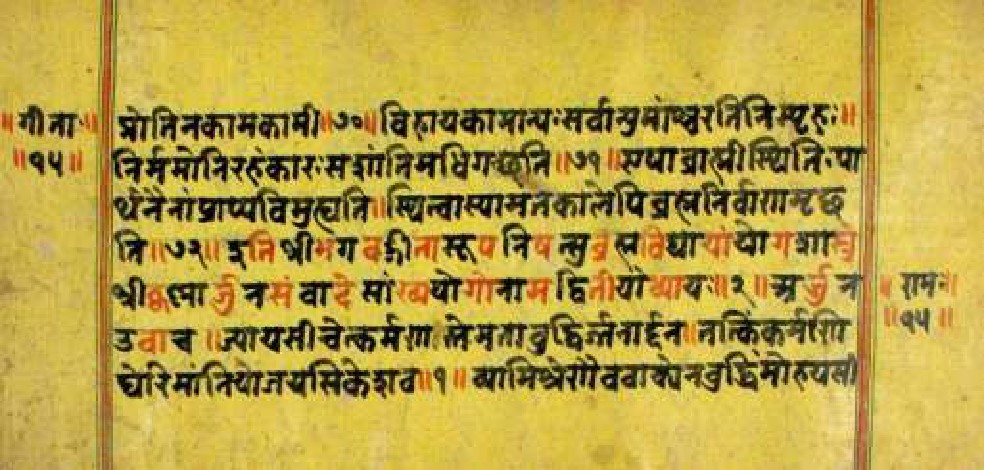 ॥गीता॰॥ प्नोतिनकामकामी॥७०॥विहायकामान्यःसर्वान्पुमांश्चरतिनिस्पृहः॥
॥१५॥ निर्ममोनिरहंकारःसशांतिमधिगच्छति॥७१॥एषाब्राह्मीस्थितिःपा
र्थनैनांप्राप्यविमुह्यति॥स्थित्वास्यामंतकालेपिब्रह्मनिर्वाणमृच्छ
ति॥७२॥इतिश्रीभगवद्गीतासूपनिषत्सुब्रह्मविद्यायांयोगशास्त्रे
श्रीकृष्णार्जुनसंवादेसांख्ययोगोनामद्वितीयोध्यायः॥२॥अर्जुन ॥रामः॥
उवाच॥ज्यायसीचेत्कर्मणस्तेमताबुद्धिर्जनार्दन॥तत्किंकर्मणि ॥१५॥
घोरेमांनियोजयसिकेशव॥१॥व्यामिश्रेणैववाक्येनबुद्धिंमोहयसी